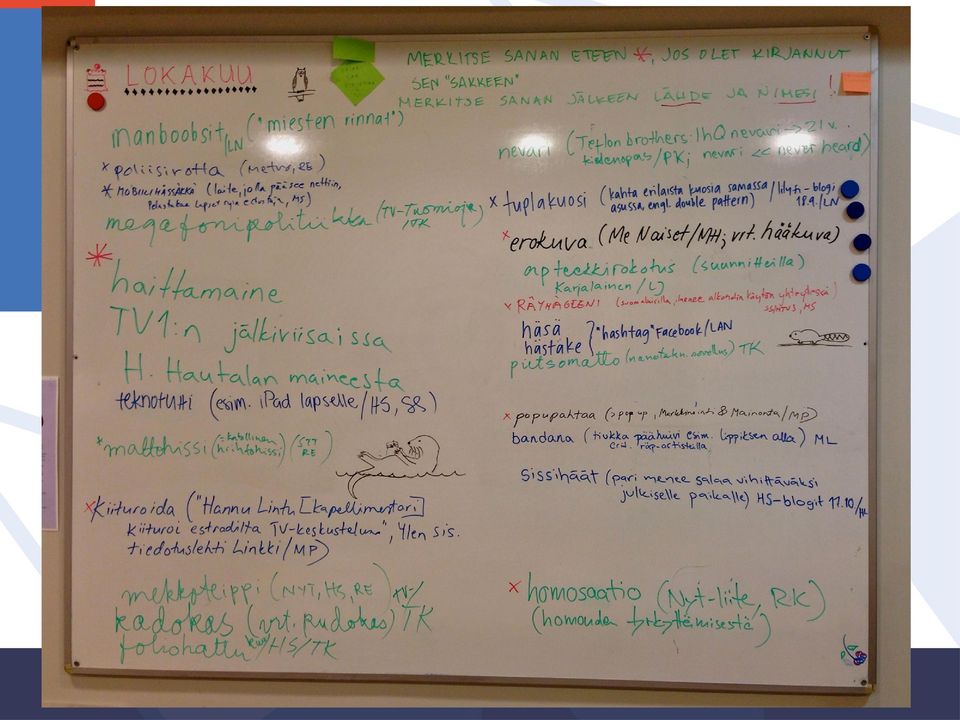 LOKAKUU
MERKITSE SANAN ETEEN *, JOS OLET KIRJANNUT
SEN "SÄKKEEN"
MERKITSE SANAN JÄLKEEN LÄHDE JA NIMESI !
manboobsit/LN ("miesten rinnat")
* poliisirotta (Metro, RE)
* MOBIILIHÄSSÄKKÄ (laite, jolla pääsee nettiin,
MS)
megafonipolitiikka (TV-Tuomioja/TK)
* haittamaine
TV1:n jälkiviisaissa
H. Hautalan maineesta
teknotutti (esim. iPad lapselle/HS, SS)
* mattohissi (=katollinen hiihtohissi) (STT RE)
* Kiituroida ("Hannu Lintu [kapellimestari]
kiituroi estradilta TV-keskusteluun", Ylen sis.
tiedotuslehti Linkki/MP)
mekkoteippi (NYT, HS, RE)
kadokas (vrt. pudokas) TK
foliohattu /HS/TK
nevari (Teflon brothers: IhQ nevari → 21 v.
tiedenopas/PK; nevari << never heard)
* tuplakuosi (kahta erilaista kuosia samassa / lily.fi-blogi
asussa, engl. double pattern) 18.9./LN
* erokuva (Me Naiset/MH; vrt. hääkuva)
apteekkirokotus (suunnitteilla)
Karjalainen/LJ
* RÄYHÄGEENI (suomalaisilla, alkoholin käytön yhteydessä)
MS
häsä
hästäke } "hashtag" Facebook/LAN
putsomatto (nanotekn. sovellus) TK
* popupahtaa (> pop up, Markkinointi & Mainonta/MP)
bandana (tiukka päähuivi esim. lippiksen alla) ML
erit. räp-artisteilla
sissihäät (pari menee salaa vihittäväksi
julkiselle paikalle) HS-blogit 17.10/
* homosaatio (Nyt-liite, RK)
(homouden